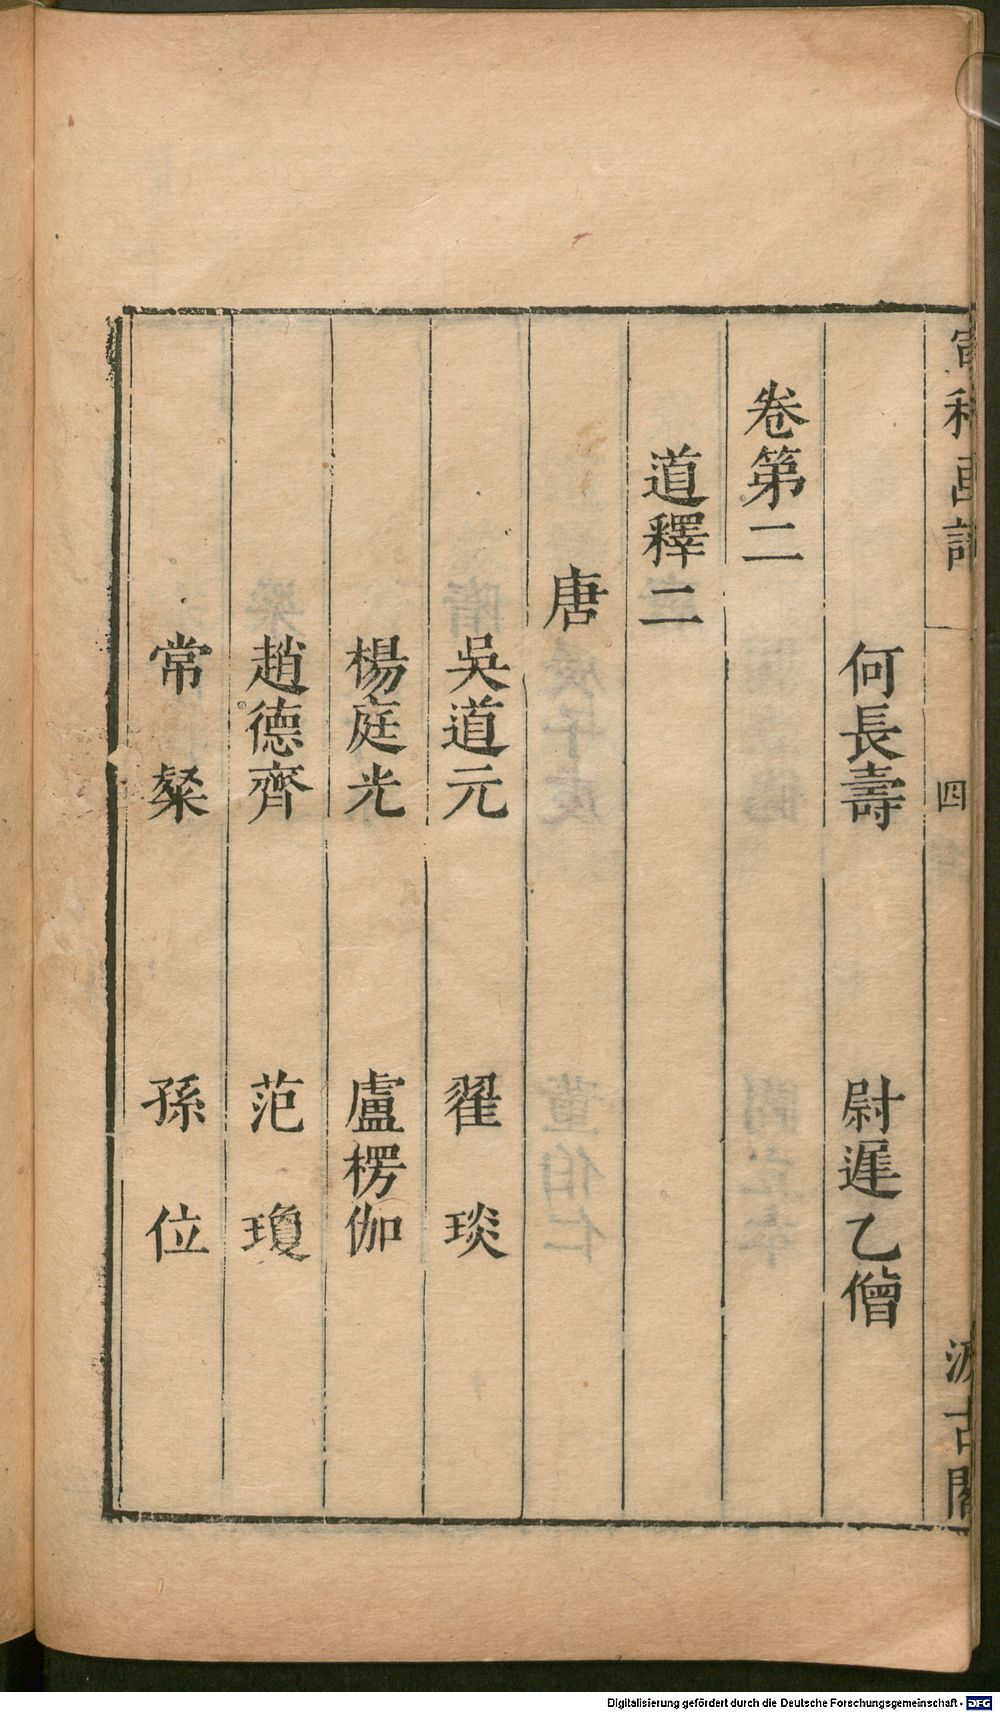 宣和画譜 四 汲古閣
何長壽 尉遲乙僧
卷第二
道釋二
唐
吳道元 翟琰
楊庭光 盧楞伽
趙德齊 范瓊
常粲 孫位
Digitalisierung gefördert durch die Deutsche Forschungsgemeinschaft - DFG